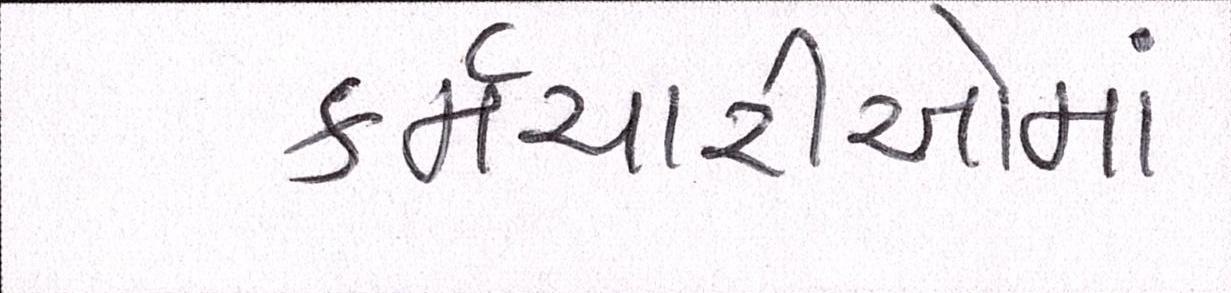 કર્મચારીઓમાં